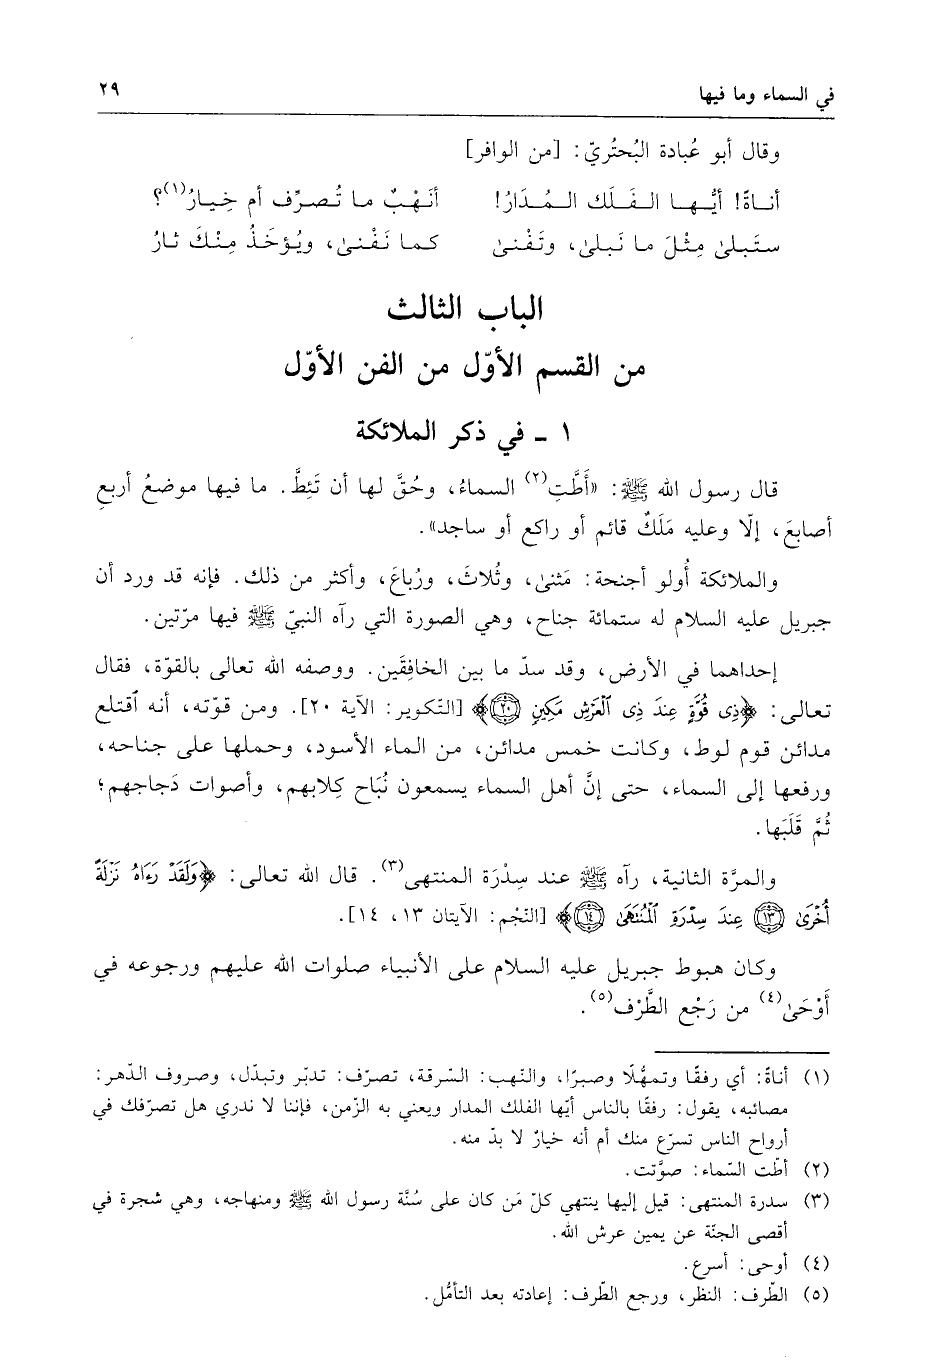 في السماء وما فيها ٢٩
وقال أبو عُبادة البُحتُريّ: [من الوافر]
أنـاةً! أيُّـهـا الـفَـلَك الـمُـدَارُ! أنَـهْبٌ مـا تُـصـرِّف أم خِـيـارُ(١)؟
ستَـبلىٰ مِثْلَ مـا نَـبلىٰ، وتَفْنىٰ كـمـا نَفْنىٰ، ويُـؤخَـذُ مِـنْـكَ ثـارُ
الباب الثالث
من القسم الأوّل من الفن الأوّل
١ ـ في ذكر الملائكة
قال رسول الله ﷺ: «أَطَّتِ(٢) السماءُ، وحُقَّ لها أن تَئِطَّ. ما فيها موضعُ أربعِ
أصابعَ، إلّا وعليه مَلَكٌ قائم أو راكع أو ساجد».
والملائكة أُولو أجنحة: مَثنىٰ، وثُلاثَ، ورُباعَ، وأكثر من ذلك. فإنه قد ورد أن
جبريل عليه السلام له ستمائة جناح، وهي الصورة التي رآه النبيّ ﷺ فيها مرّتين.
إحداهما في الأرض، وقد سدّ ما بين الخافِقَين. ووصفه الله تعالى بالقوّة، فقال
تعالى: ﴿ذِى قُوَّةٍ عِندَ ذِى ٱلْعَرْشِ مَكِينٍ ٢٠﴾ [التّكوير: الآية ٢٠]. ومن قوّته، أنه ٱقتلع
مدائن قوم لوط، وكانت خمس مدائن، من الماء الأسود، وحملها على جناحه،
ورفعها إلى السماء، حتى إنَّ أهل السماء يسمعون نُبَاح كِلابهم، وأصوات دَجاجهم؛
ثُمَّ قَلَبَها.
والمرَّة الثانية، رآه ﷺ عند سِدْرَة المنتهى(٣). قال الله تعالى: ﴿وَلَقَدْ رَءَاهُ نَزْلَةً
أُخْرَىٰ ١٣ عِندَ سِدْرَةِ ٱلْمُنتَهَىٰ ١٤﴾ [النّجم: الآيتان ١٣، ١٤].
وكان هبوط جبريل عليه السلام على الأنبياء صلوات الله عليهم ورجوعه في
أَوْحَىٰ(٤) من رَجْع الطَّرْف(٥).
(١) أناةً: أي رفقًا وتمهُّلًا وصبرًا، والنّهب: السّرقة، تصرّف: تدبّر وتبدّل، وصروف الدّهر:
مصائبه، يقول: رفقًا بالناس أيّها الفلك المدار ويعني به الزّمن، فإننا لا ندري هل تصرّفك في
أرواح الناس تسرّع منك أم أنه خيارٌ لا بدّ منه.
(٢) أطّت السّماء: صوَّتت.
(٣) سدرة المنتهى: قيل إليها ينتهي كلّ مَن كان على سُنَّة رسول الله ﷺ ومنهاجه، وهي شجرة في
أقصى الجنّة عن يمين عرش الله.
(٤) أوحى: أسرع.
(٥) الطّرف: النظر، ورجع الطّرف: إعادته بعد التأمُّل.